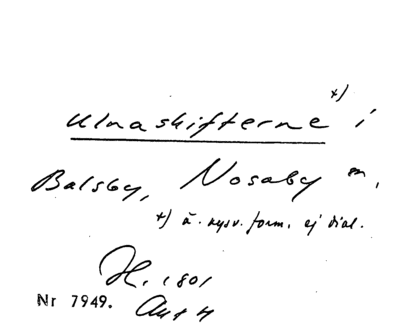 Ulnaskifterne x) i
Balsby, Nosaby sn,
x) ä. nysv. form. ej dial.
H. 1801
Nr 7949. Akt 4